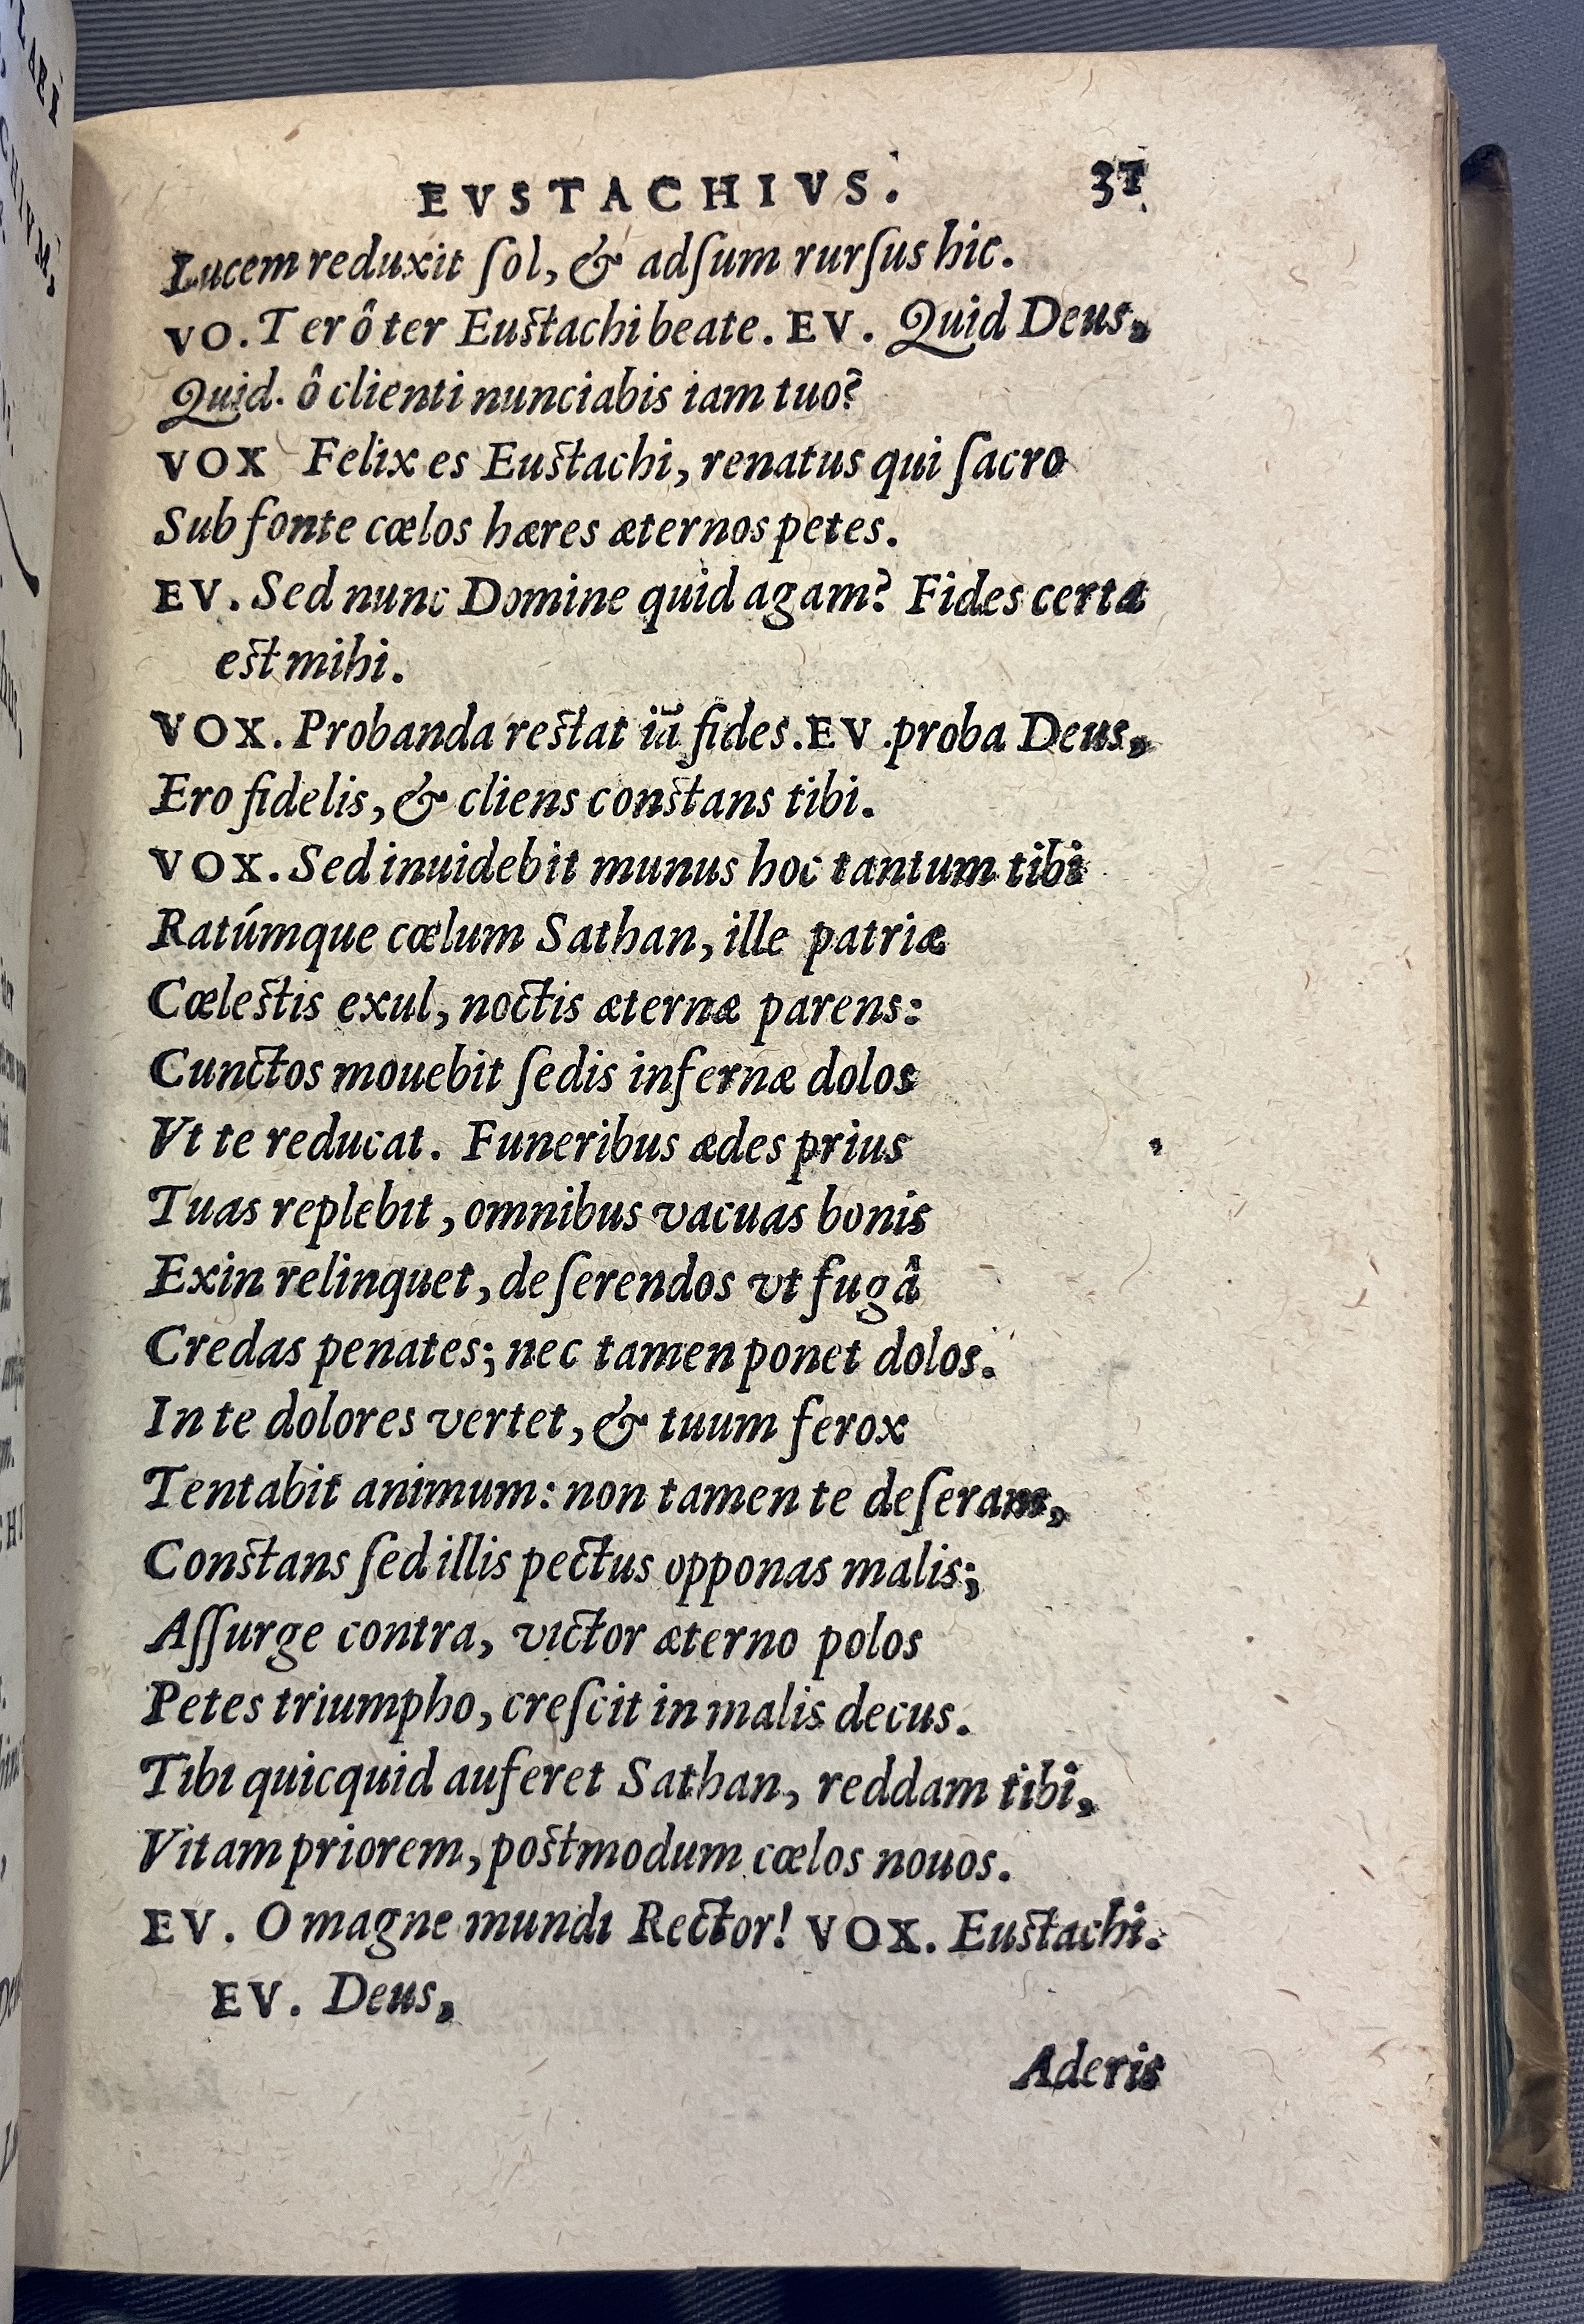 EVSTACHIVS. 31
Lucem reduxit ſol, & adſum rurſus hic.
VO. Ter ô ter Euſtachi beate. EV. Quid Deus,
Quid ô clienti nunciabis iam tuo?
VOX Felix es Euſtachi, renatus qui ſacro
Sub fonte cœlos hæres æternos petes.
EV. Sed nunc Domine quid agam? Fides certa
eſt mihi.
VOX. Probanda reſtat iā fides. EV. proba Deus,
Ero fidelis, & cliens conſtans tibi.
VOX. Sed inuidebit munus hoc tantum tibi
Ratúmque cœlum Sathan, ille patriæ
Cœleſtis exul, noctis æternæ parens:
Cunctos mouebit ſedis infernæ dolos
Vt te reducat. Funeribus ædes prius
Tuas replebit, omnibus vacuas bonis
Exin relinquet, deſerendos vt fugâ
Credas penates; nec tamen ponet dolos.
In te dolores vertet, & tuum ferox
Tentabit animum: non tamen te deſeram,
Conſtans ſed illis pectus opponas malis;
Aſſurge contra, victor æterno polos
Petes triumpho, creſcit in malis decus.
Tibi quicquid auferet Sathan, reddam tibi,
Vitam priorem, poſtmodum cœlos nouos.
EV. O magne mundi Rector! VOX. Euſtachi.
EV. Deus,
Aderis